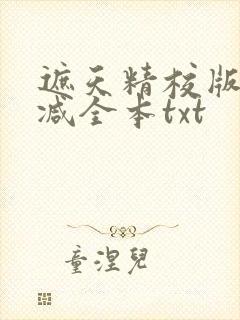 遮天精校版
减全本txt
童涅兒